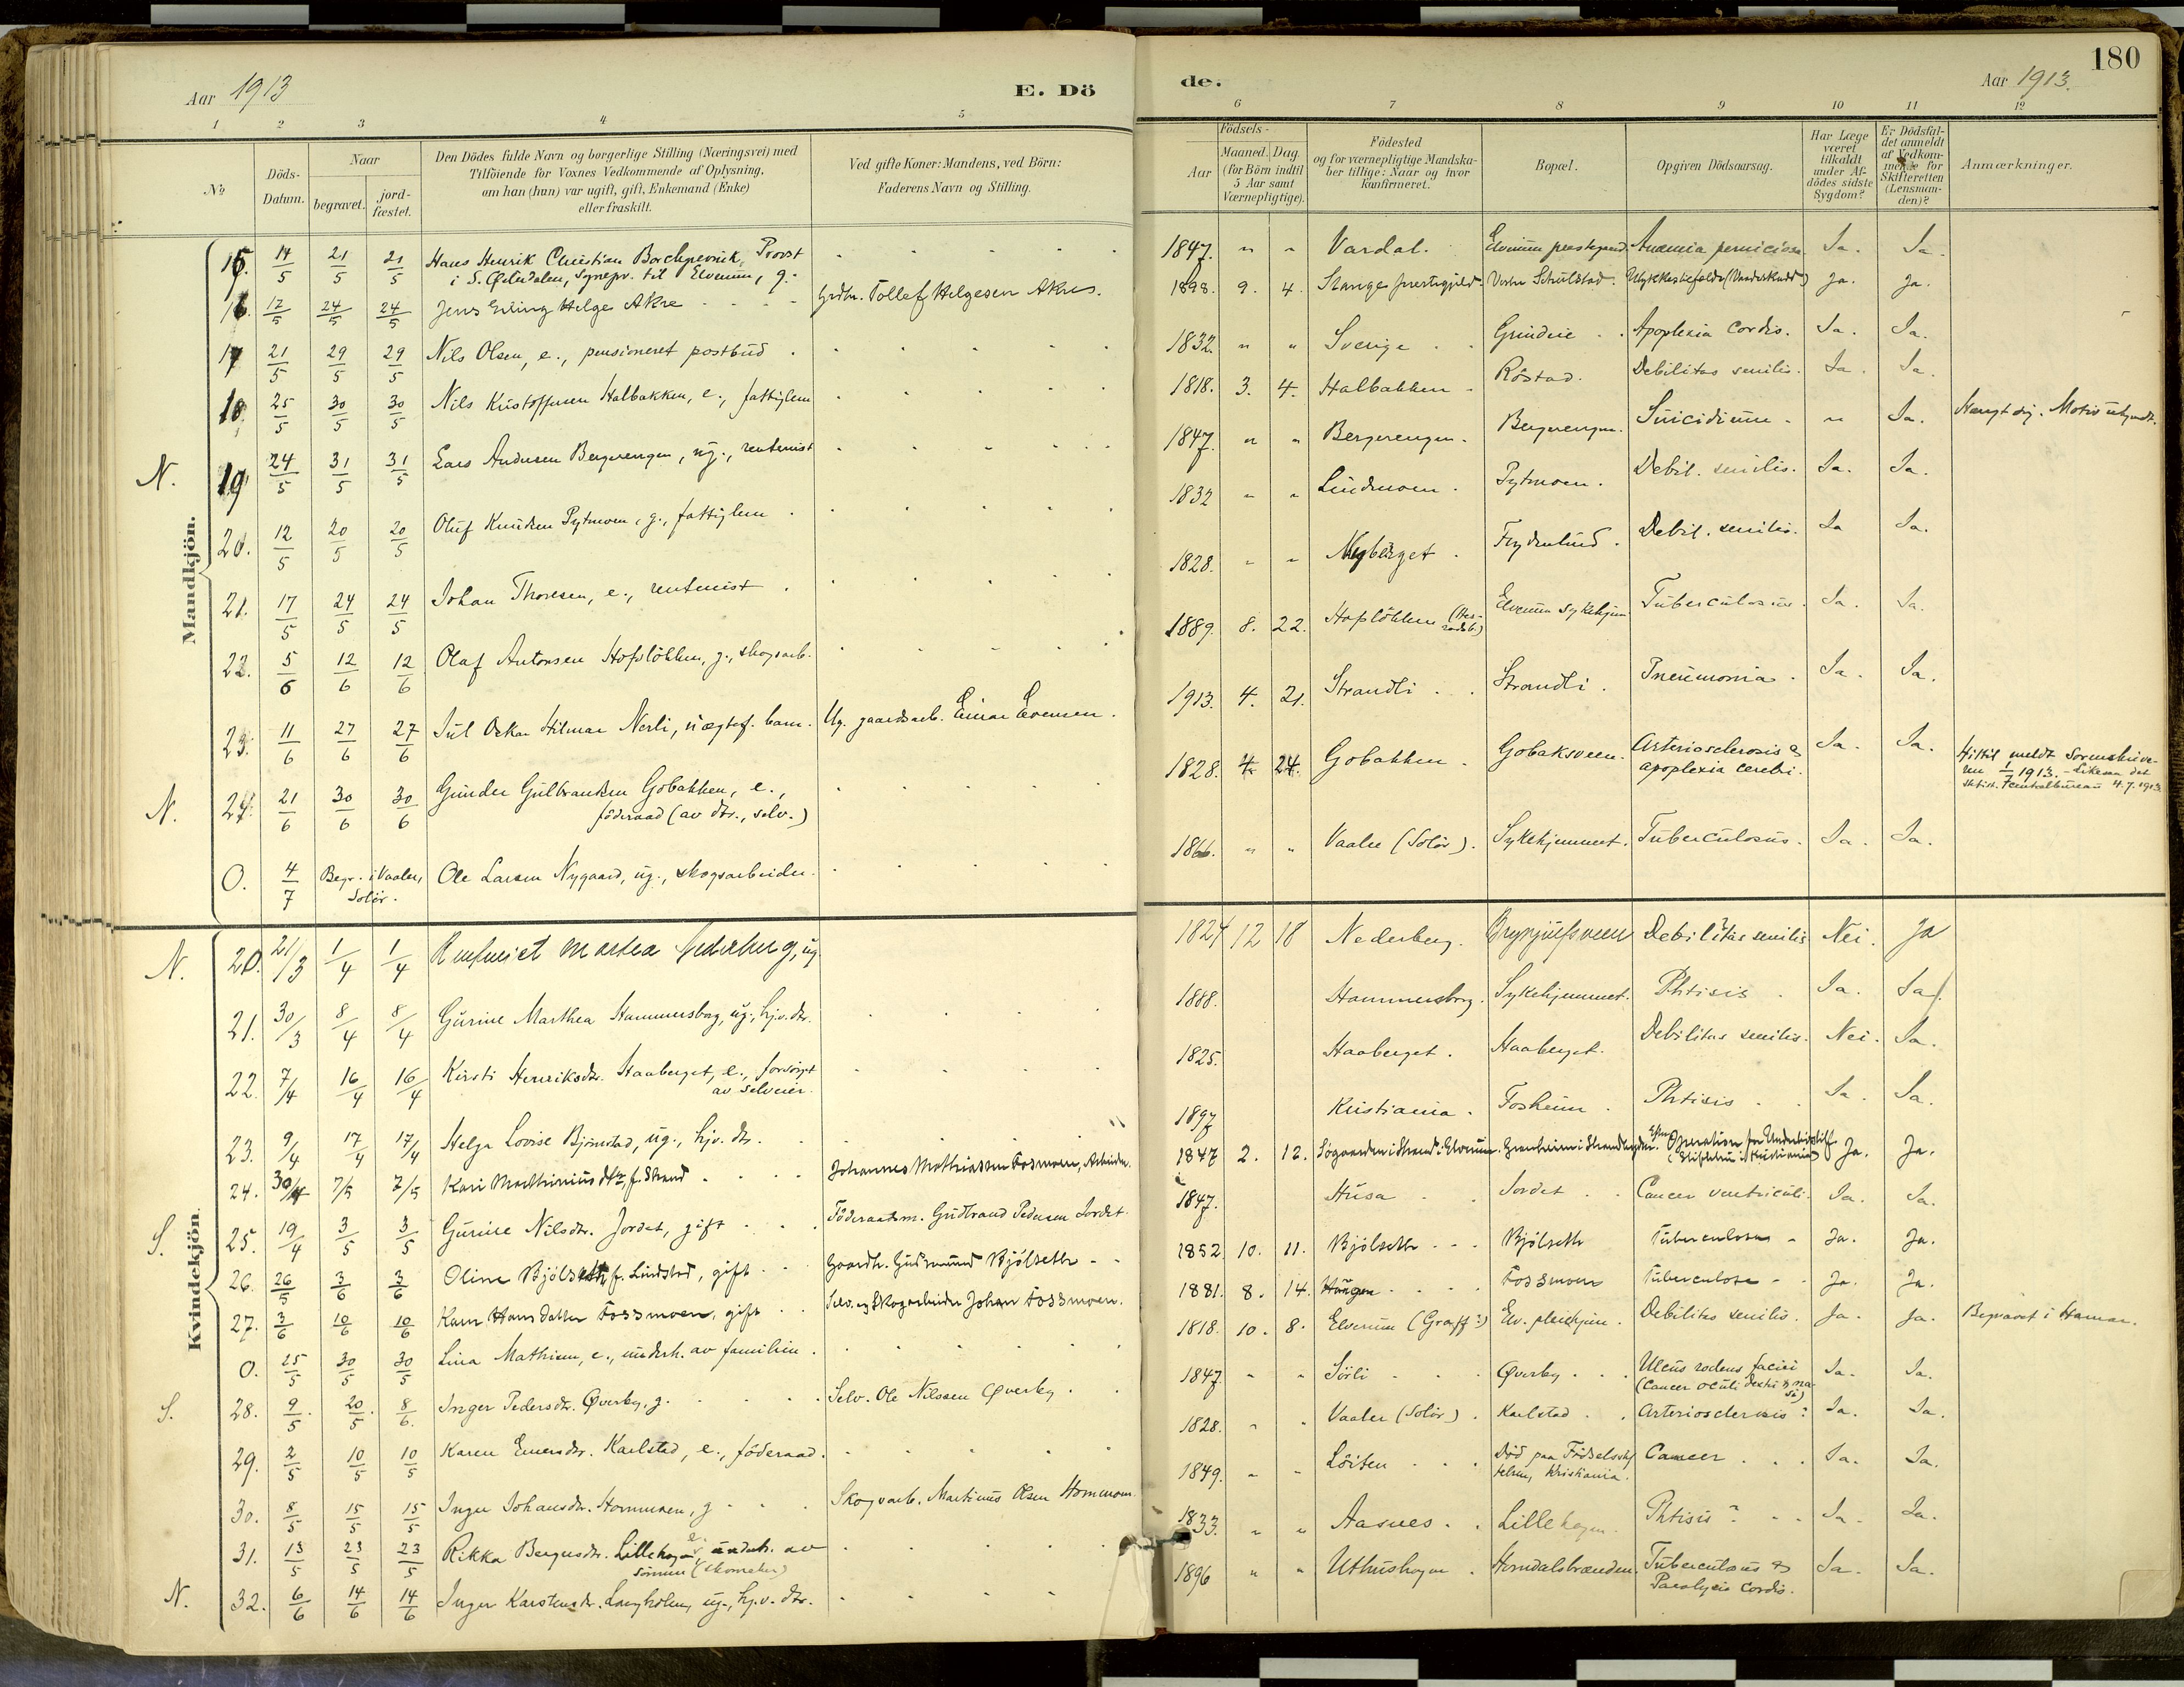 180
Aar 1913
E. Dö
de.
Aar 1913.
1 2 3 4 5 6 7 8 9 10 11 12
№
Döds-Datum.
Naar
begravet.
jord-fæstet.
Den Dödes fulde Navn og borgerlige Stilling (Næringsvei) med
Tilföiende for Voxnes Vedkommende af Oplysning,
om han (hun) var ugift, gift, Enkemand (Enke)
eller fraskilt.
Ved gifte Koner: Mandens, ved Börn:
Faderens Navn og Stilling.
Födsels-
Aar
Maaned. Dag.
(for Börn indtil
5 Aar samt
Værnepligtige).
Födested
og for værnepligtige Mandska-
ber tillige: Naar og hvor
konfirmeret.
Bopæl.
Opgiven Dödsaarsag.
Har Læge
været
tilkaldt
under Af-
dödes sidste
Sygdom?
Er Dödsfal-
det anmeldt
af Vedkom-
mende for
Skifteretten
(Lensman-
den)?
Anmærkninger.
Mandkjön.
15. 14/5 21/5 21/5 Hans Henrik Christian Borchgrevink, Provst 1847. " " Vardal. Elverum prestegaard. Anæmia perniciosa. Ja. Ja.
i S. Østerdalen, sognepr. til Elverum, g.
16. 12/5 24/5 24/5 Jens Erling Helge Akre Grdbr. Tollef Helgesen Akres. 1898. 9. 4. Stange prestegjeld. Vestre Schulstad. Ulykkestilfælde (Vaadeskudd) Ja. Ja.
17 21/5 29/5 29/5 Nils Olsen, e., pensioneret postbud 1832. " " Sverige Grindeie Apoplexia cordis. Ja. Ja.
18. 25/5 30/5 30/5 Nils Kristoffersen Halbakken, e., fattiglem 1818. 3. 4. Halbakken Röstad. Debilitas senilis. Ja. Ja.
N. 19 24/5 31/5 31/5 Lars Andersen Bergerengen, ug., rentenist 1847. " " Bergerengen. Bergerengen. Suicidium. " Ja. Hængt sig. Motiv ukjendt.
20. 12/5 20/5 20/5 Oluf Knudsen Pytmoen, g., fattiglem 1832 " " Lindmoen. Pytmoen. Debil. senilis. Ja. Ja.
21. 17/5 24/5 24/5 Johan Thoresen, e., rentenist 1828. " " Nyberget. Frydenlund. Debil. senilis. Ja Ja.
22. 5/6 12/6 12/6 Olaf Antonsen Hoflökken, g., skogsarb. 1889. 8. 22. Hoflökken Elverum sykehjem Tuberculosus. Ja. Ja.
23. 11/6 27/6 27/6 Jul Oskar Hilmar Nerli, uægtef. barn. Ug. gaardsarb. Einar Evensen. 1913. 4. 21. Strandli Strandli. Pneumonia. Ja. Ja.
N. 24. 21/6 30/6 30/6 Gunder Gulbrandsen Gobakken, e., 1828. 4. 24. Gobakken. Gobaksveen. Arteriosclerosis & Ja. Ja. Hittil meldt Sorenskrive-
föderaad (av dtr., selv.) apoplexia cerebri. ren 1/7 1913. - Likesaa det
statist. centralbureau 4. 7. 1913.
O. 4/7 Begr. i Vaaler, Solör. Ole Larsen Nygaard, ug., skogsarbeider. 1866. " " Vaaler (Solör). Sykehjemmet. Tuberculosus. Ja. Ja.
Kvindekjön.
N. 20. 21/3 1/4 1/4 Rentenist Martea Nederberg, ug 1824 12 18 Nederberg. Debilitas senilis Nei. Ja
21. 30/3 8/4 8/4 Gurine Marthea Hammersborg, ug., hj.v. dtr. 1888. Hammersborg. Sykehjemmet. Phtisis Ja. Ja.
22. 7/4 16/4 16/4 Kirsti Henriksdtr. Haaberget, e., forsörget 1825. Haaberget. Haaberget. Debilitas senilis. Nei. Ja.
av selveier.
23. 9/4 17/4 17/4 Helga Lovise Björnstad, ug., hjv. dtr. 1897 Kristiania. Fosheim. Phtisis Ja. Ja.
24. 30/4 7/5 7/5 Kari Marthiniusdtr, f. Strand Johannes Mathiassen Fosmoen, Arbeider. 1847 2. 12. Søgaarden i Strand i Elverum. Granheim i Strandbygden. Efter Operation for Underlivslidf. Ja. Ja.
S. 25. 19/4 3/5 3/5 Gurine Nilsdtr. Jordet, gift Föderaadsm. Gudbrand Pedersen Jordet 1847. Husa Jordet Cancer ventriculi. Ja. Ja.
26. 26/5 3/6 3/6 Oline Bjölseth f. Lindstad, gift Gaardbr. Gudmund Bjölseth 1852 10. 11. Bjölseth Bjölseth Tuberculosus Ja. Ja.
27. 3/6 10/6 10/6 Karen Hansdatter Fossmoen, gift Selv. og Skogarbeider Johan Fossmoen. 1881. 8. 14. Haugen Fossmoen Tuberculose Ja. Ja.
O. 25/5 30/5 30/5 Lina Mathisen, e., underh. av familien. 1818. 10. 8. Elverum (Graff?) Elv. pleiehjem. Debilitas senilis. Ja. Ja. Begravet i Hamar.
S. 28. 9/5 20/5 8/6. Inger Pedersdtr. Øverby, g. Selv. Ole Nilssen Øverby. 1847. " " Sörli Øverby Ulcus rodens faciei Ja. Ja.
(Cancer oculi dextri & nasi)
29. 2/5 10/5 10/5 Karen Emersdtr. Karlstad, e., föderaad. 1828. " " Vaaler (Solör). Karlstad. Arteriosclerosis? Ja. Ja.
30. 8/5 15/5 15/5 Inger Johansdtr. Hommoen, g Skogsarb. Martinus Olsen Hommoen 1849. " " Löiten Död paa Födselsstif- Cancer Ja. Ja.
telsen, Kristiania.
31. 13/5 23/5 23/5 Rikka Bergersdtr. Lillehagen, e. underh. av 1833. " " Aasnes. Lillehagen. Phtisis? Ja. Ja.
sönnen (skomaker)
N. 32. 6/6 14/6 14/6 Inger Karstensdr. Langholen, ug., hj.v. dtr. 1896 " " Uthushagen. Horndalsbrænden. Tuberculosus & Ja. Ja.
Paralysis cordis.